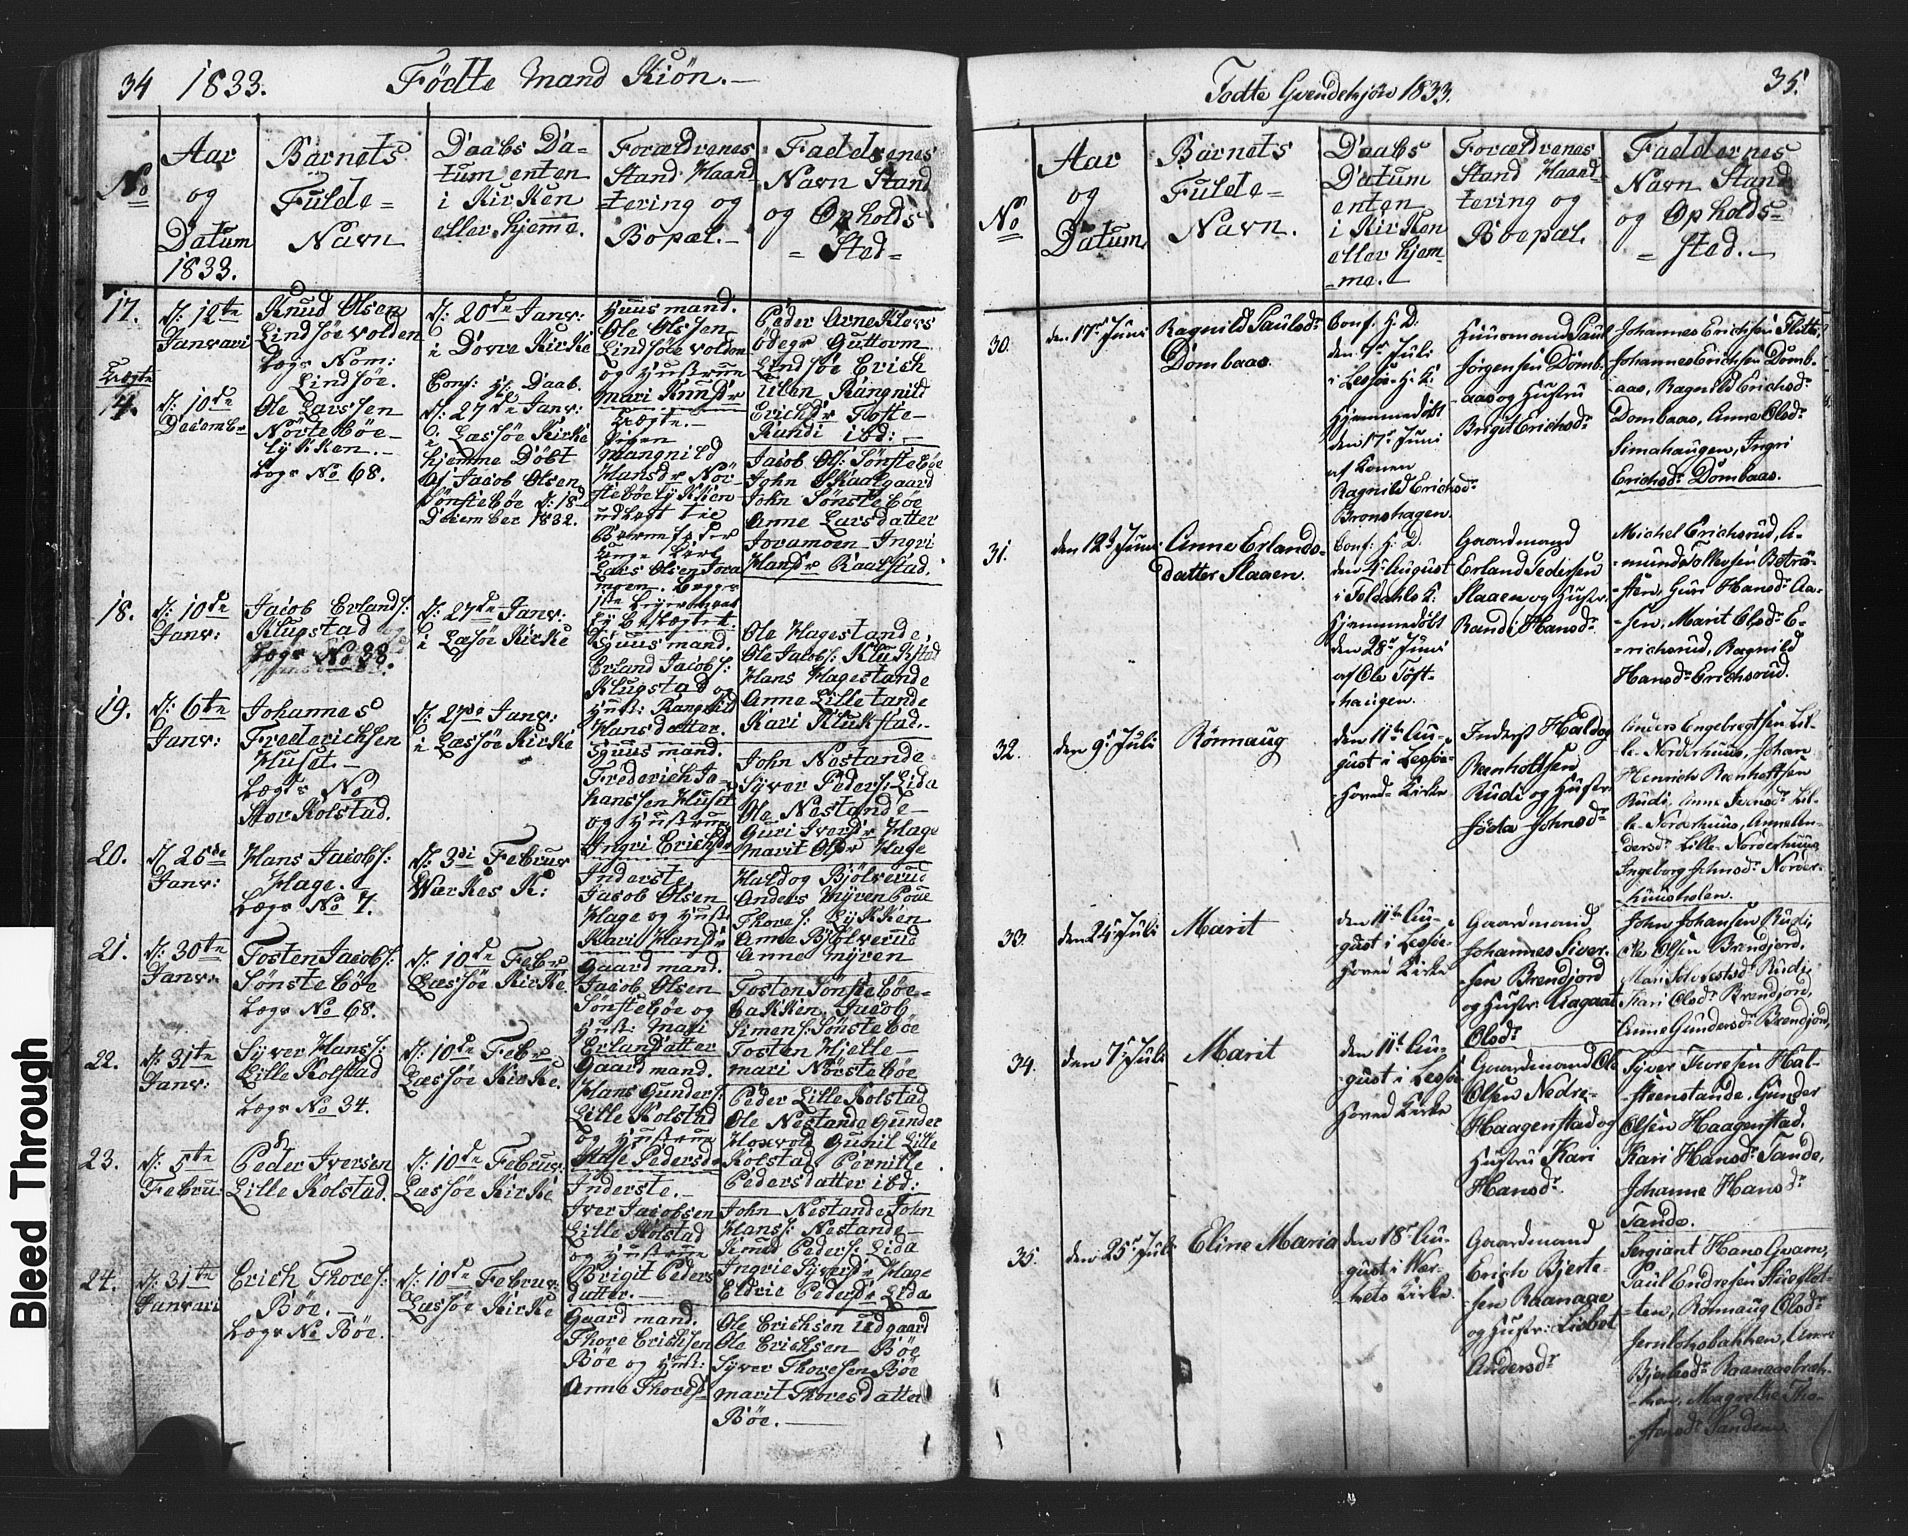 34 1833. Födte Mand Kiön.
No
Aar
og
Datum
1833.
Barnets
Fulde
Navn
Daabs Da-
tum enten
i Kirken
eller hjeme.
Forældrenes
Stand Haand
-tering og
Bopæl.
Faddrenes
Navn Stand
og Opholds
Sted
17.
D: 12te
Janvari
Knud Olsen
Lindsöevolden
Lægs Nom:
Lindsöe.
D: 20de Janv:
i Dovre Kirke
Huusmand.
Ole Olssen
Lindsöe volden
og Hustrue
Mari Knudsdr
Peder Arne Klevs
ödegr Guttorm
Lindsöe Erich
Ulen Rangnild
Erichsdr Tofte
Randi ibd:
14.
D: 10de
Decembr
Ole Larssen
Nörteböe
lykken.
Lægs No 68.
Conf: H: Daab.
D: 27de Janv:
i Læssöe Kirke
hjemme Döbt
af Jacob Olsen
Sönsteböe D: 18d
December 1832.
Uægte.
Pigen
Mangnild
Hansdr Nör-
steböelykken
udlagt til
Barnefader
Lars Olsen Jora
moen.
Jacob Ols: Sönsteböe
John Skaalgaard
John Sönsteböe
Anne Larsdatter
Joramoen Ingri
Hansdr Raalstad.
18.
D: 10de
Janv:
Jacob Erlands:
Klugstad
Lægs No 38.
D: 27de Janv:
i Læsöe Kirke
Huusmand.
Erland Jacobs:
Klugstad og
Hust: Rangnild
Hansdatter.
Ole Hagestande,
Ole Jacobs: Klukstad
Hans Hagestande
Anne Lille tande
Kari Klukstad.
19.
D: 6te
Janv:
Johannes
Frederichsen
Huset.
Lægs No
Stor Kolstad.
D: 27de Janv:
i Læssöe Kirke
Huusmand.
Frederich Jo-
hanssen Huset
og Hustrue
Ingri Erichsdr
John Nestande
Syver Peders: Lida
Ole Nestande
Guri Iversdr Hage
Marit Olsdr Hage
20.
D 26de
Janv:
Hans Jacobs:
Hage.
Lægs No 7.
D: 3di Februv
Værkes K:
Inderste
Jacob Olsen
Hage og Hust
Kari Hansdr
Haldog Bjölverud
Anders Myren Böue
Thores: Lykken
Anne Bjölverud
Anne Myren
21.
D: 30te
Janv:
Tosten Jacobs:
Sönsteböe
Lægs No 68.
D: 10de Febr
Læssöe Kirke.
Gaardmand.
Jacob Olsen
Sönsteböe og
Hust: Mari
Erlandatter
Tosten Sonsteböe-
bakken Jacob
Simens: Sönsteböe
Tosten Hjelle
Mari Nörsteböe
22.
D: 31te
Janv:
Syver Hans:
Lille Kolstad
Lægs No 34.
D: 10de Febr
Læssöe Kirke.
Gaardmand.
Hans Gunders:
Lille Kolstad
og Hustrue
Aase Pedersdr
Peder Lille Kolstad
Ole Nestande Gunder
Hosvold Gunil Lille
Kolstad Pernille
Pedersdatter ibd:
23.
D: 5te
Febru:
Peder Iversen
Lille Kolstad.
D: 10de Februv:
Læssöe Kirke
Inderste.
Iver Jacobsen
Lille Kolstad
og Hustrue
Brigit Peders
datter.
John Nestande John
Hans: Nestande
Knud Peders: Lida
Ingrie Syversdr Hage
Eldrie Pedersdr Lida
24.
D: 31te
Janvari
Erich Thores:
Böe.
Lægs No Böe.
D: 10de Februv:
Læssöe Kirke
Gaardmand.
Thore Erichsen
Böe og Hust:
Anne Thores-
Ole Erichsen Udgaard
Ole Erichsen Böe
Syver Thoresen Böe
Marit Thoresdatter
Böe.
Födte Qvendekjön 1833. 35.
No
Aar
og
Datum
Barnets
Fulde
Navn.
Daabs
Datum
enten
i Kirken
eller hjem-
me.
Forældrenes
Stand Haand-
tering og
Boepæl.
Faddernes
Navn Stand
og Opholds-
sted.
30.
den 17de Juni
Ragnild Paulsdr
Dombaas.
Conf. H: D:
den 7de Juli
i Lessöe H: K:
Hjemmedöbt
den 17de Juni
af Konen
Ragnild Erichsdr
Bronshagen.
Huusmand Paul
Jörgensen Domb-
aas og Hustru
Brigit Erichsdr
Johannes Erichsen Tofte
Johannes Erichsen Domb-
aas, Ragnild Erichsdr
Dombaas, Anne Olsdr
Simahaugen, Ingri
Erichsdr Dombaas.
31.
den 12te Juni
Anne Erlands-
datter Slaaen.
Conf: H: D:
den 4de August
i Foldahls K:
Hjemmedöbt
den 28de Juni
af Ole Toft-
haugen.
Gaardmand
Erland Pedersen
Slaaen og Hustr:
Randi Hansdr
Michel Erichsrud, A-
mund Tollevsen Boträ-
ften, Guri Hansdr Aa-
sen, Marit Olsdr E-
richsrud, Ragnild
Hansdr Erichsrud.
32.
den 9de Juli
Rönnaug
den 11te Au-
gust i Lessöe-
Hoved Kirke
Inderst Haldog
Reenholtsen
Rudi og Hustr:
Jöda Johnsdr
Anders Engebregtsen Lil-
le Norderhuus, Johan
Henrich Reenholtsen
Rudi, Anne Iversdr Lil-
le Norderhuus, Anne An-
dersdr Lille Norderhuus
Ingeborg Johnsdr Norder-
huusholen.
33.
den 25de Juli
Marit
den 11te Au-
gust i Lessöe-
Hoved Kirke
Gaardmand
Johannes Siver-
sen Brendjord
og Hustr: Aagaat
Olsdr
John Johansen Rudi,
Ole Olsen Brendjord,
Mari Silvestsdr Rudi,
Kari Olsdr Brendjord,
Anne Gundersdr Brendjord,
34.
den 7de Juli
Marit
den 11te Au-
gust i Lessöe
Hoved Kirke
Gaardmand Ole
Olsen Nedre-
Haagenstad og
Hustru Kari
Hansdr
Syver Thoresen Hal-
steenstande, Gunder
Olsen Haagenstad,
Kari Hansdr Tande,
Johanne Hansdr
Tande.
35.
den 25de Juli
Eline Maria
den 18de Au-
gust i Vær-
kets Kirke.
Gaardmand
Erich Bjerte-
sen Raanaae
og Hustr: Lisbet
Andersdr
Sergiant Hans Qvame,
Paul Endresen Stueflot-
ten, Rönnaug Olsdr
Jernlohsbakken, Anne
Bjertesdr Raanaaebræk-
ken, Magrethe Tho-
stensdr Sanden.
Bleed Through